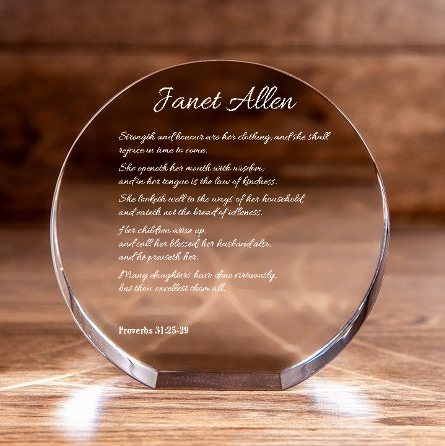 Janet Allen
Strength and honour are her clothing, and she shall
rejoice in time to come.
She openeth her mouth with wisdom,
and in her tongue is the law of kindness.
She looketh well to the ways of her household,
and eateth not the bread of idleness.
Her children arise up,
and call her blessed; her husband also,
and he praiseth her.
Many daughters have done virtuously,
but thou excellest them all.
Proverbs 31:25-29